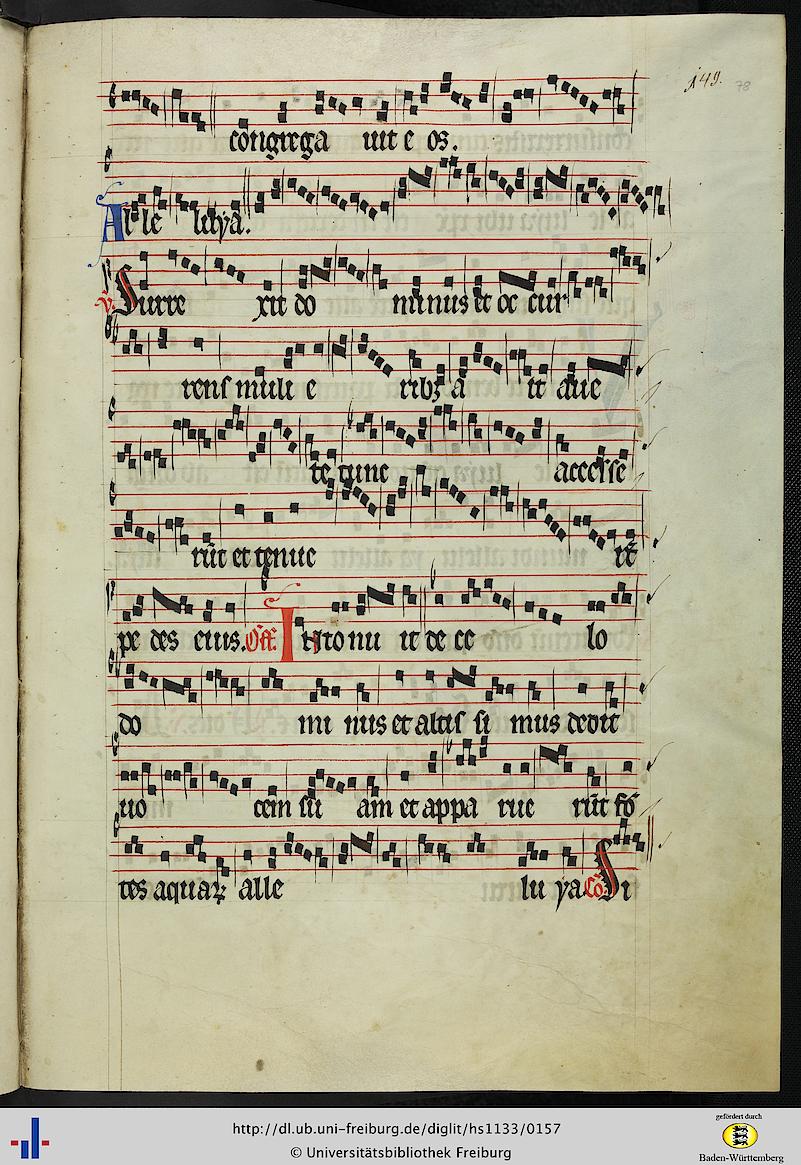 149.
78
congrega uit e os.
Al le luya.
℣. Surre xit do minus et oc cur
rens muli e ribꝫ a it aue
te tunc accesse
rūt et tenue rt̄
pe des eius. Off. Intonu it de ce lo
do mi nus et altis si mus dedit
uo cem su am et appa rue rūt fō
tes aquaꝝ alle lu ya Cō. Si
http://dl.ub.uni-freiburg.de/diglit/hs1133/0157
© Universitätsbibliothek Freiburg
gefördert durch
Baden-Württemberg